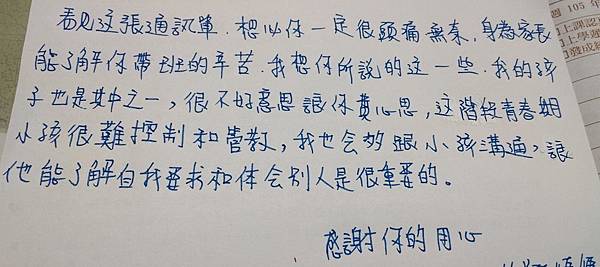 看見这張通訊單．想必你一定很頭痛無奈．身為家長
能了解你帶班的辛苦．我想你所說的这一些．我的孩
子也是其中之一，很不好意思讓你費心思，这階段青春期
小孩很難控制和管教，我也会多跟小孩溝通，讓
他能了解自我要求和体会别人是很重要的。
感謝你的用心
105年